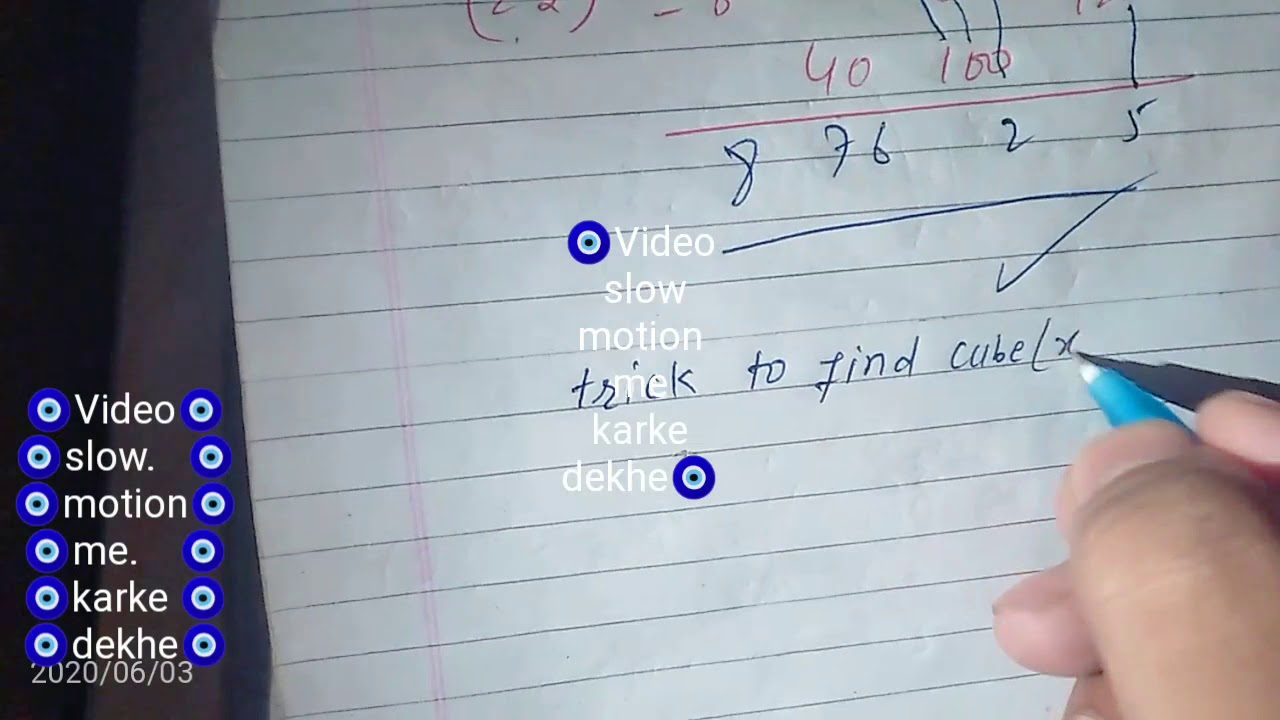 40 100
8 76 2 5
trick to find cube(x
Video
slow
motion
me
karke
dekhe
Video
slow.
motion
me.
karke
dekhe
2020/06/03